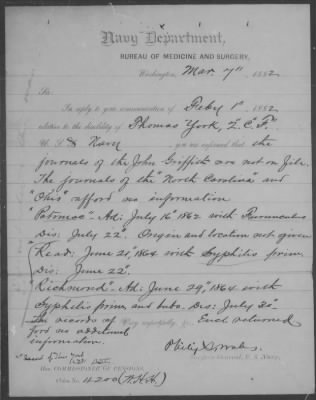 Navy Department,
BUREAU OF MEDICINE AND SURGERY,
Washington, Mar 7th 1882
Sir:
In reply to your communication of Feby 1st 1882
relative to the disability of Thomas York, L.C.F.
U.S. Navy, you are informed that the
journals of the John Griffith are not on file.
The journals of the "North Carolina" and
"Ohio" afford no information
"Potomac" - Ad: July 16" 1862 with Furunculus
Dis: July 22". Origin and location not given
Read: June 21" 1864 with Syphilis prim.
Dis: June 22".
"Richmond" Ad: June 29" 1864 with
Syphilis prim and bubo. Dis: July 30"
The records af Very respectfully, &c. Encl returned
ford no additional
information.
Philip S Wales
Surgeon General, U.S. Navy.
Hon. COMMISSIONER OF PENSIONS.
Claim No. 4200 (W.H.H.)